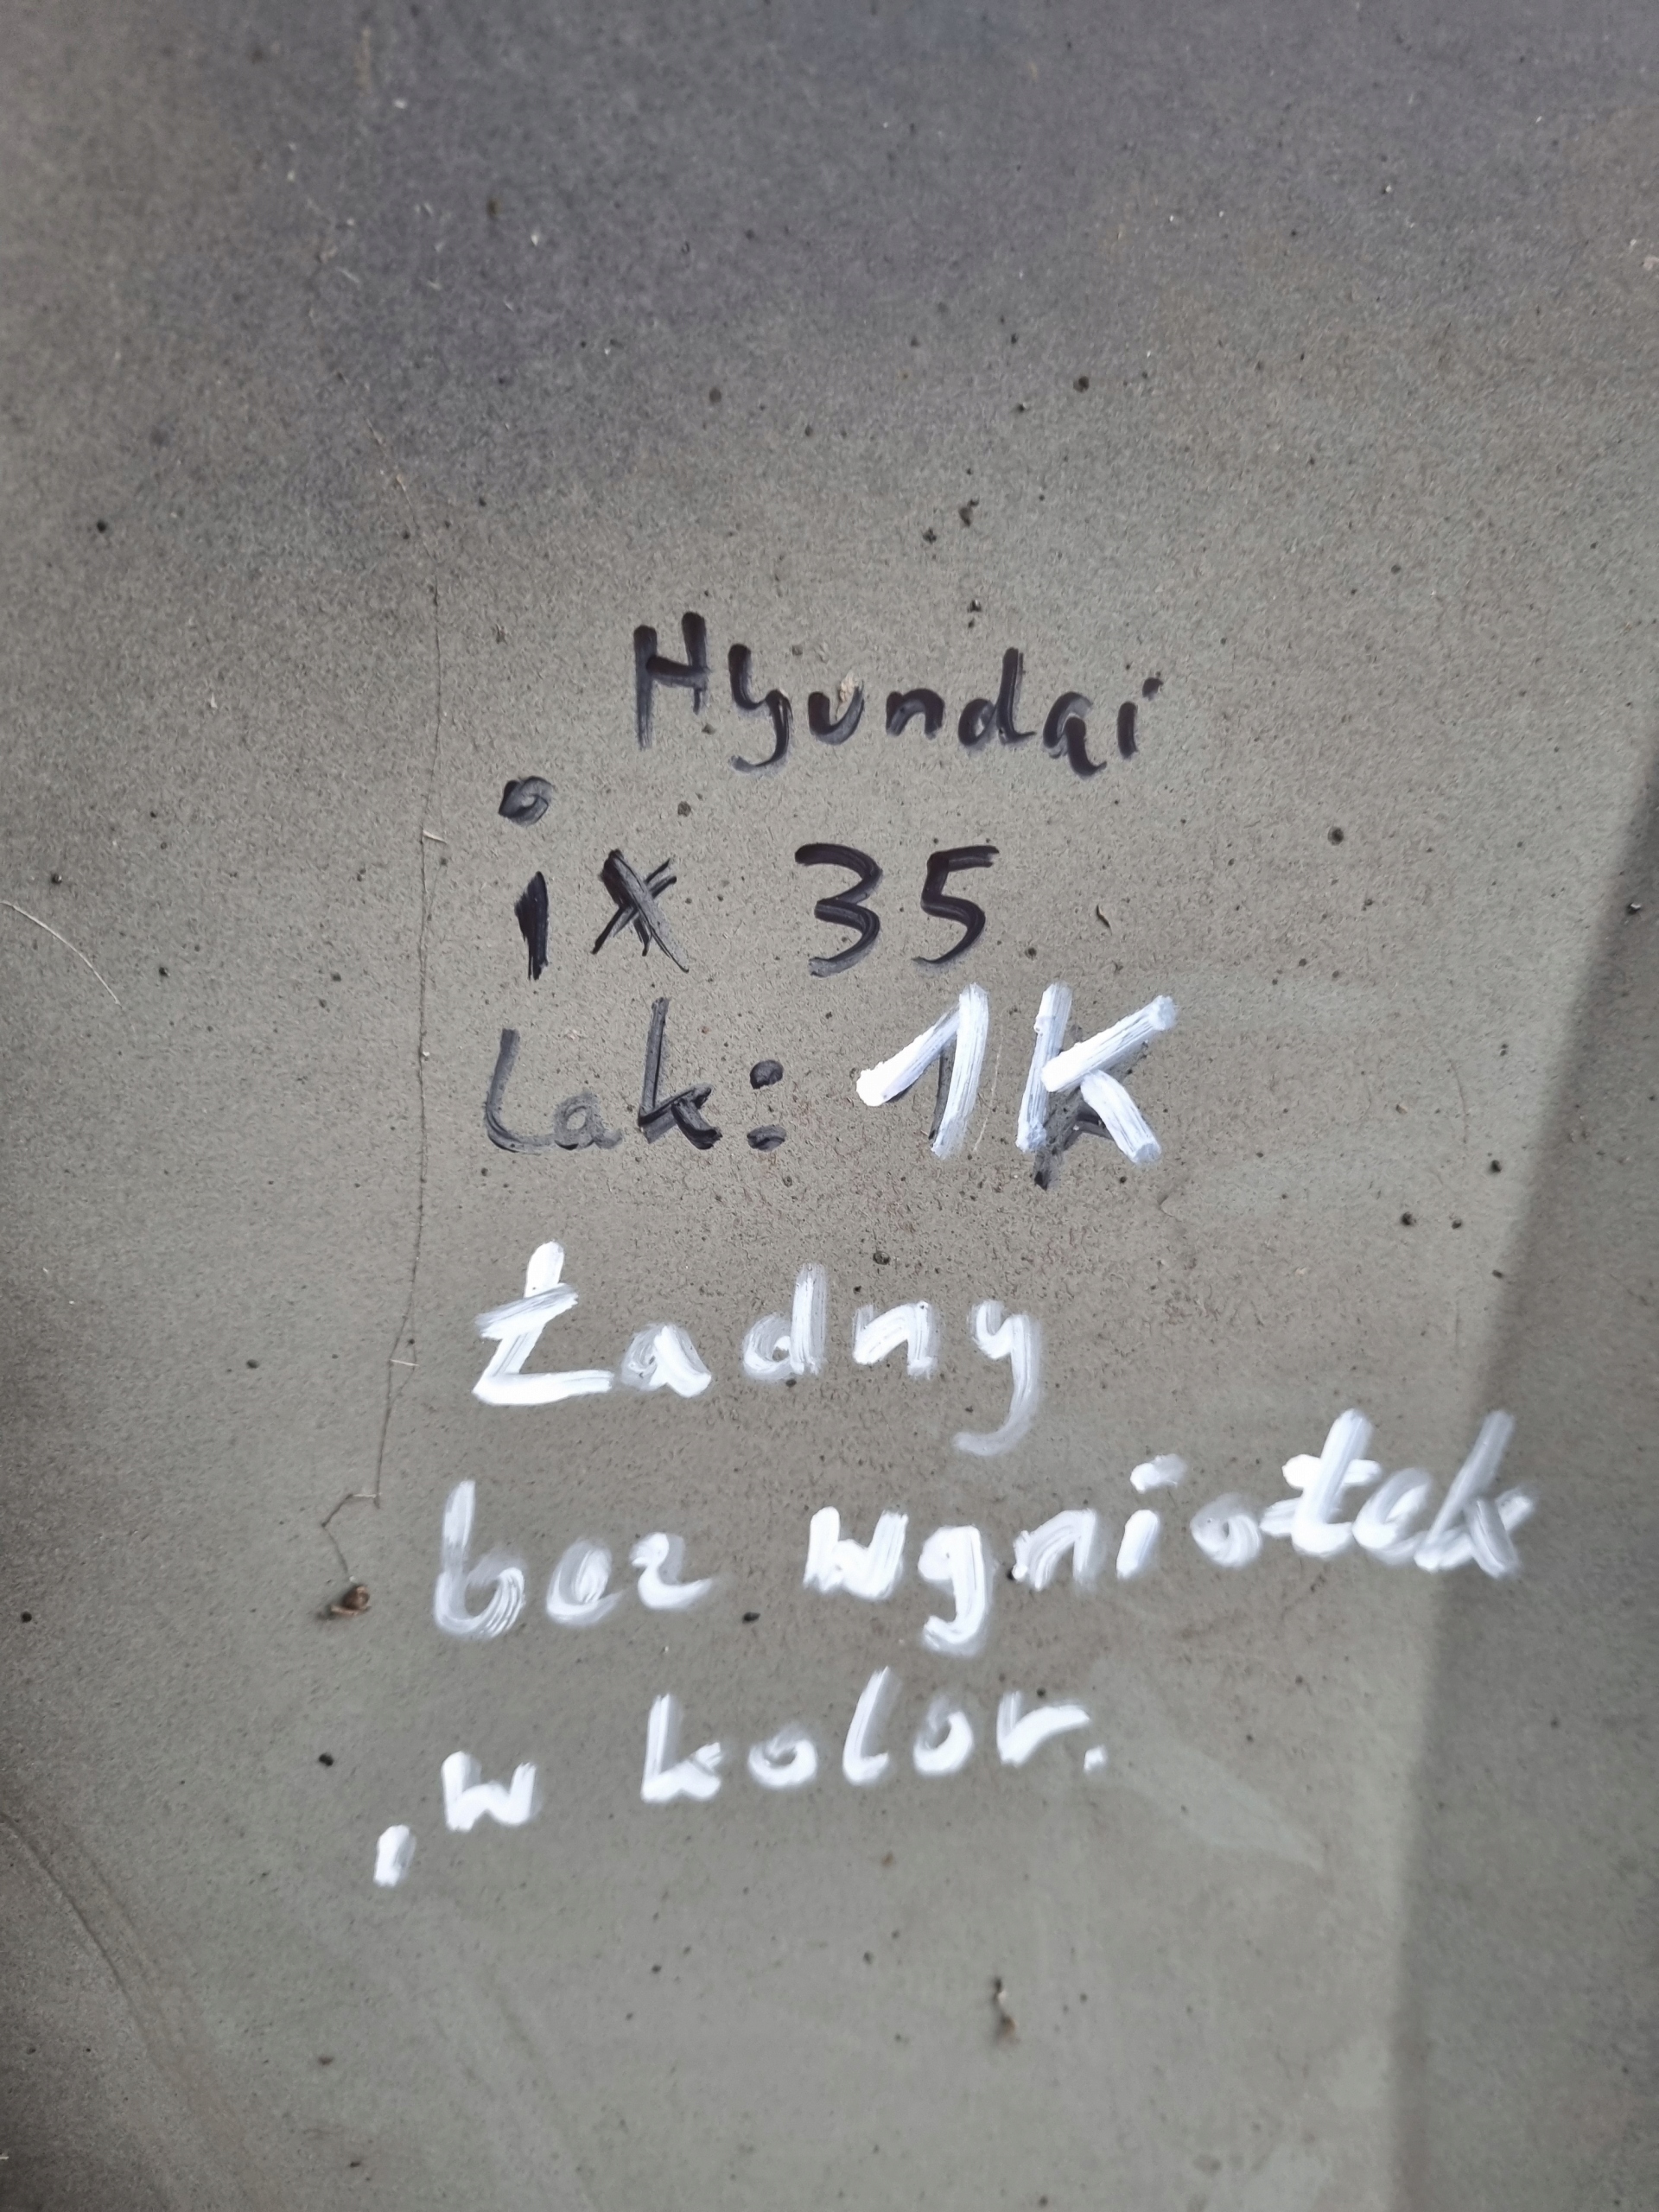 Hyundai
ix 35
Lak: 1K
Ładny
bez wgniotek
, w kolor.